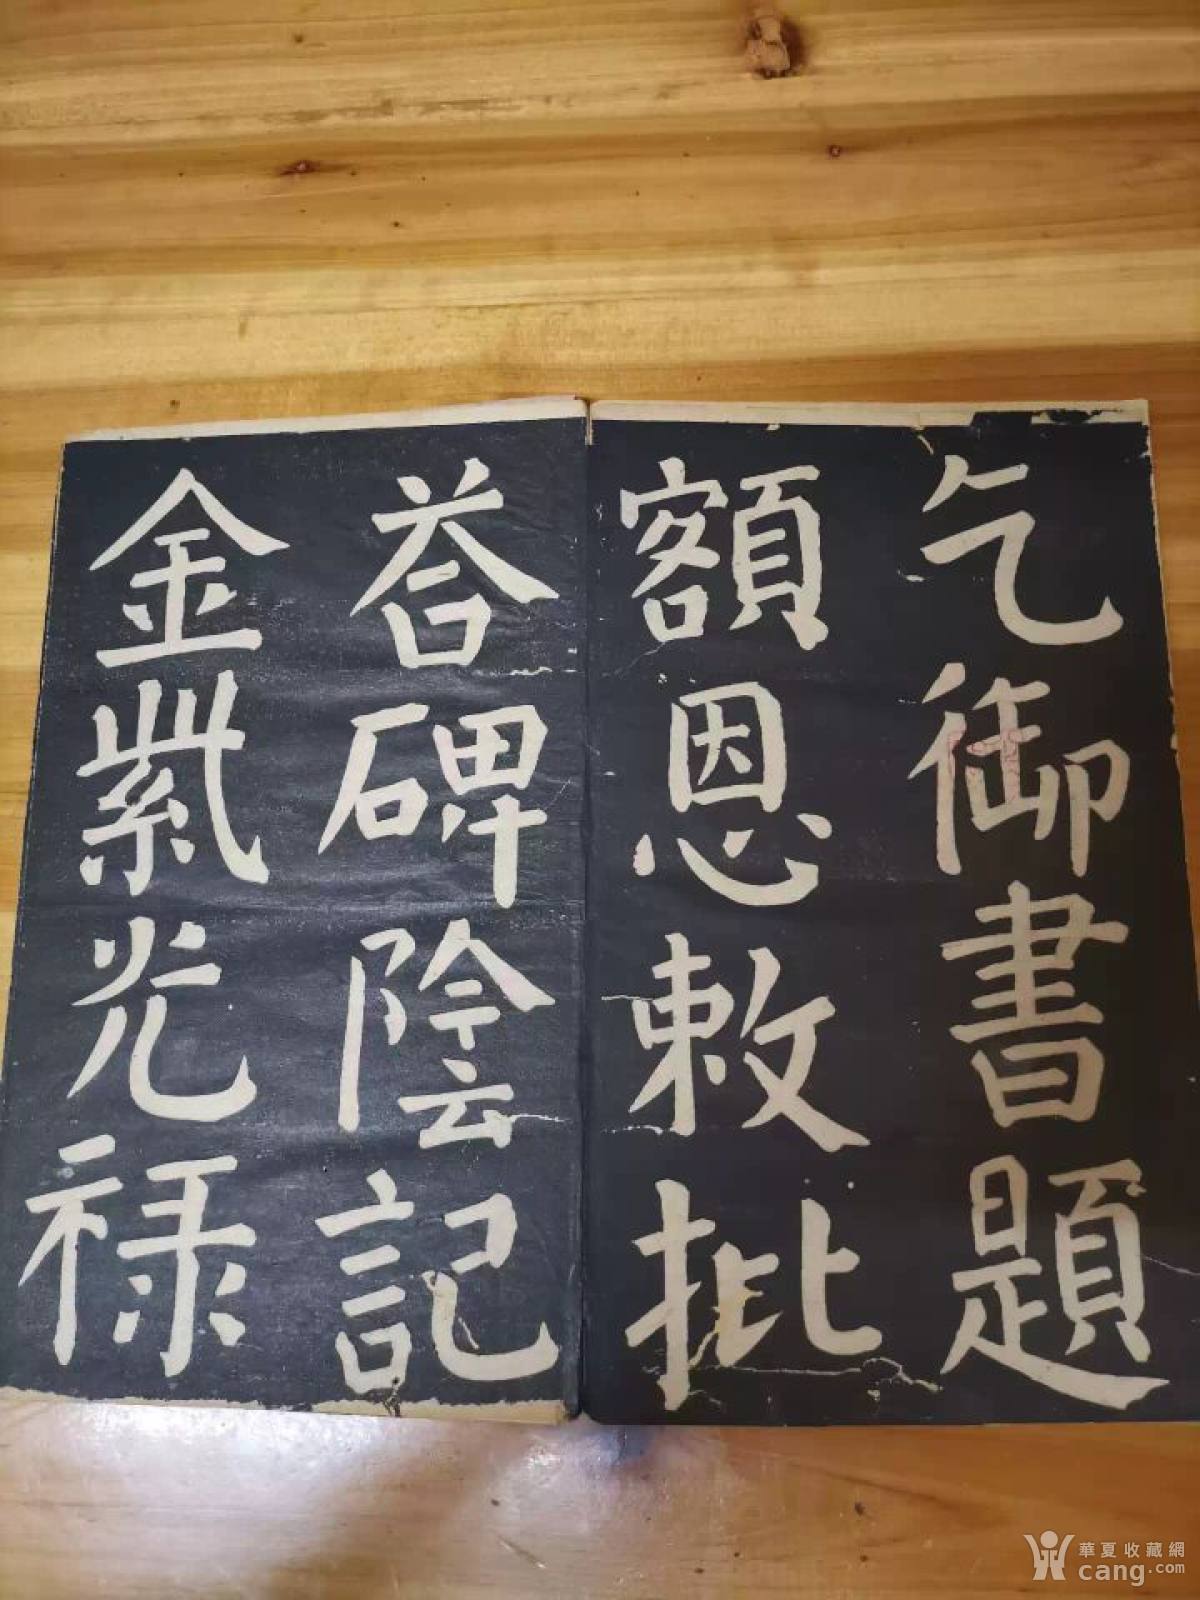 乞御書題
額恩敕批
荅碑陰記
金紫光祿
華夏收藏網
cang.com